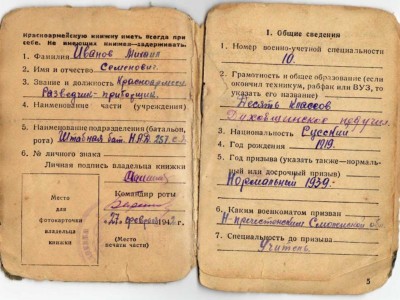 Красноармейскую книжку иметь всегда при
себе. Не имеющих книжки—задерживать.
1. Фамилия Иванов Михаил
2. Имя и отчество Семенович
3. Звание и должность Красноармеец
Разведчик-
4. Наименование части (учреждения)
5. Наименование подразделения (батальон,
рота) Штабная бат.
6. № личного знака
Личная подпись владельца книжки
Командир роты
Место
для
фотокарточки
владельца
книжки
27 февраля
(Место
печати части)
I. Общие сведения
1. Номер военно-учетной специальности
10.
2. Грамотность и общее образование (если
окончил техникум, рабфак или ВУЗ, то
указать его название)
Десять классов
Духовщинское педучил.
3. Национальность Русский
4. Год рождения 1919.
5. Год призыва (указать также—нормаль-
ный или досрочный призыв)
Нормальный 1939.
6. Каким военкоматом призван
Смоленской обл.
7. Специальность до призыва
Учитель
5